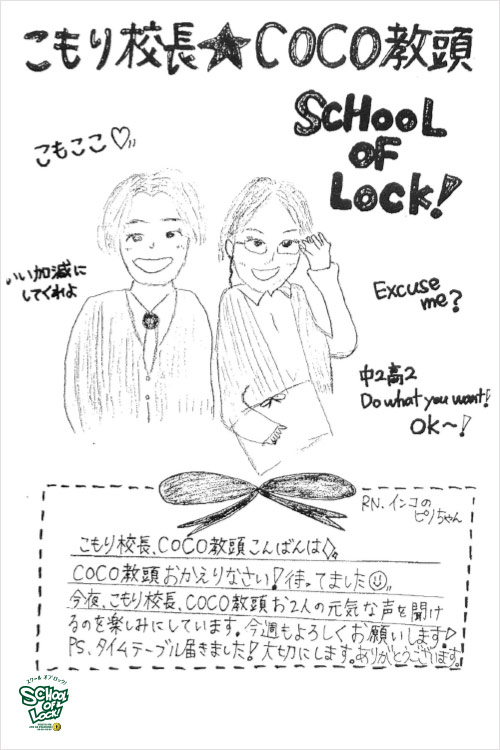 こもり校長★COCO教頭
SCHOOL
OF
LOCK!
こもここ♡
いい加減に
してくれよ
Excuse
me?
中2高2
Do what you want!
OK〜!
RN.インコの
ピリちゃん
こもり校長、COCO教頭こんばんは
COCO教頭おかえりなさい!待ってました☺
今夜、こもり校長、COCO教頭お2人の元気な声を聞け
るのを楽しみにしています。今週もよろしくお願いします!
PS、タイムテーブル届きました!大切にします。ありがとうございます。
スクール オブ ロック!
SCHOOL
OF
LOCK!